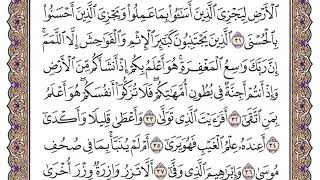 ٱلْأَرْضِ لِيَجْزِىَ ٱلَّذِينَ أَسَٰٓـُٔوا۟ بِمَا عَمِلُوا۟ وَيَجْزِىَ ٱلَّذِينَ أَحْسَنُوا۟
بِٱلْحُسْنَى ٣١ ٱلَّذِينَ يَجْتَنِبُونَ كَبَٰٓئِرَ ٱلْإِثْمِ وَٱلْفَوَٰحِشَ إِلَّا ٱللَّمَمَ
إِنَّ رَبَّكَ وَٰسِعُ ٱلْمَغْفِرَةِ هُوَ أَعْلَمُ بِكُمْ إِذْ أَنشَأَكُم مِّنَ ٱلْأَرْضِ
وَإِذْ أَنتُمْ أَجِنَّةٌ فِى بُطُونِ أُمَّهَٰتِكُمْ فَلَا تُزَكُّوٓا۟ أَنفُسَكُمْ هُوَ أَعْلَمُ
بِمَنِ ٱتَّقَىٰٓ ٣٢ أَفَرَءَيْتَ ٱلَّذِى تَوَلَّىٰ ٣٣ وَأَعْطَىٰ قَلِيلًا وَأَكْدَىٰٓ
٣٤ أَعِندَهُۥ عِلْمُ ٱلْغَيْبِ فَهُوَ يَرَىٰٓ ٣٥ أَمْ لَمْ يُنَبَّأْ بِمَا فِى صُحُفِ
مُوسَىٰ ٣٦ وَإِبْرَٰهِيمَ ٱلَّذِى وَفَّىٰٓ ٣٧ أَلَّا تَزِرُ وَازِرَةٌ وِزْرَ أُخْرَىٰ